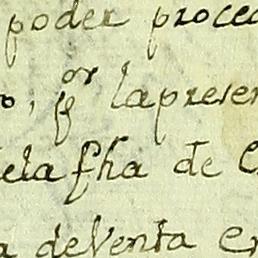 poder proce
o, por lapresen
dela fha de
a deVenta en